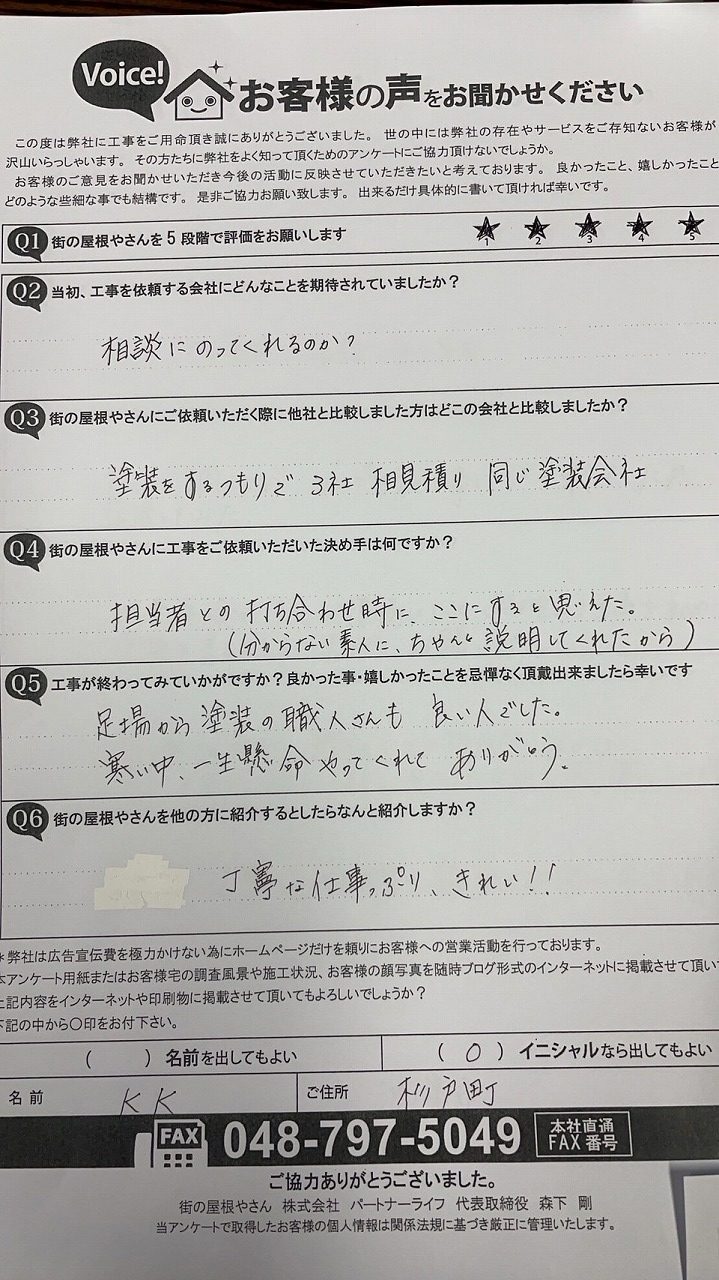 Voice!
お客様の声をお聞かせください
この度は弊社に工事をご用命頂き誠にありがとうございました。 世の中には弊社の存在やサービスをご存知ないお客様が
沢山いらっしゃいます。 その方たちに弊社をよく知って頂くためのアンケートにご協力頂けないでしょうか。
お客様のご意見をお聞かせいただき今後の活動に反映させていただきたいと考えております。 良かったこと、嬉しかったこと
どのような些細な事でも結構です。 是非ご協力お願い致します。 出来るだけ具体的に書いて頂ければ幸いです。
Q1 街の屋根やさんを5段階で評価をお願いします ★1 ★2 ★3 ★4 ★5
Q2 当初、工事を依頼する会社にどんなことを期待されていましたか？
相談にのってくれるのか？
Q3 街の屋根やさんにご依頼いただく際に他社と比較しました方はどこの会社と比較しましたか？
塗装をするつもりで 3社 相見積り 同じ塗装会社
Q4 街の屋根やさんに工事をご依頼いただいた決め手は何ですか？
担当者との打ち合わせ時に、ここにすると思えた。
(分からない素人に、ちゃんと説明してくれたから)
Q5 工事が終わってみていかがですか？良かった事・嬉しかったことを忌憚なく頂戴出来ましたら幸いです
足場から塗装の職人さんも 良い人でした。
寒い中、一生懸命やってくれて ありがとう。
Q6 街の屋根やさんを他の方に紹介するとしたらなんと紹介しますか？
丁寧な仕事っぷり、きれい!!
＊弊社は広告宣伝費を極力かけない為にホームページだけを頼りにお客様への営業活動を行っております。
本アンケート用紙またはお客様宅の調査風景や施工状況、お客様の顔写真を随時ブログ形式のインターネットに掲載させて頂い
上記内容をインターネットや印刷物に掲載させて頂いてもよろしいでしょうか？
下記の中から〇印をお付下さい。
（ ）名前を出してもよい （ O ）イニシャルなら出してもよい
名前 KK ご住所 杉戸町
FAX 048-797-5049 本社直通 FAX番号
ご協力ありがとうございました。
街の屋根やさん 株式会社 パートナーライフ 代表取締役 森下 剛
当アンケートで取得したお客様の個人情報は関係法規に基づき厳正に管理いたします。